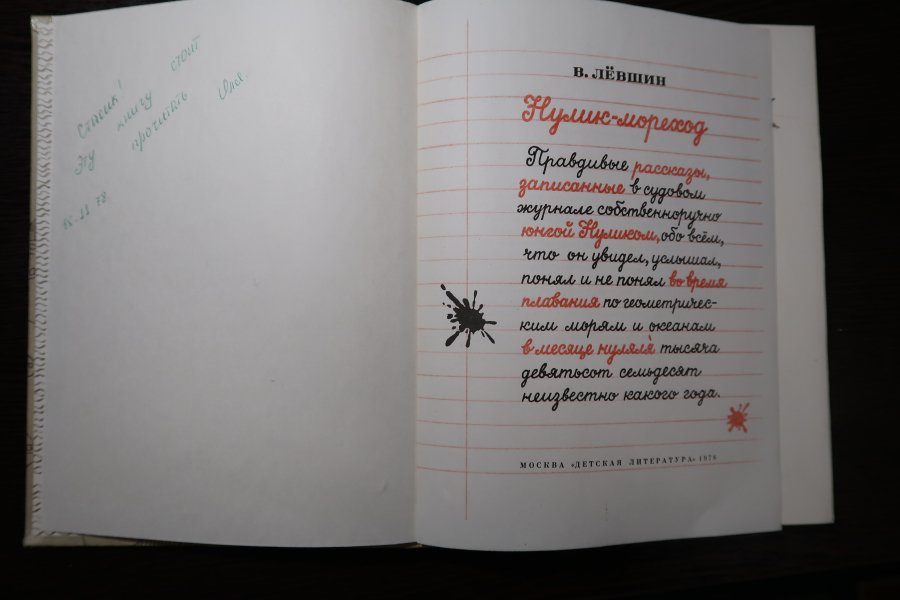 Стасик!
Эту книгу стоит
прочитать Оля.
15.11.78.
В. ЛЁВШИН
Нулик-мореход
Правдивые рассказы,
записанные в судовом
журнале собственноручно
юнгой Нуликом, обо всём,
что он увидел, услышал,
понял и не понял во время
плавания по геометричес-
ким морям и океанам
в месяце нуляле́ тысяча
девятьсот семьдесят
неизвестно какого года.
МОСКВА «ДЕТСКАЯ ЛИТЕРАТУРА» 1978